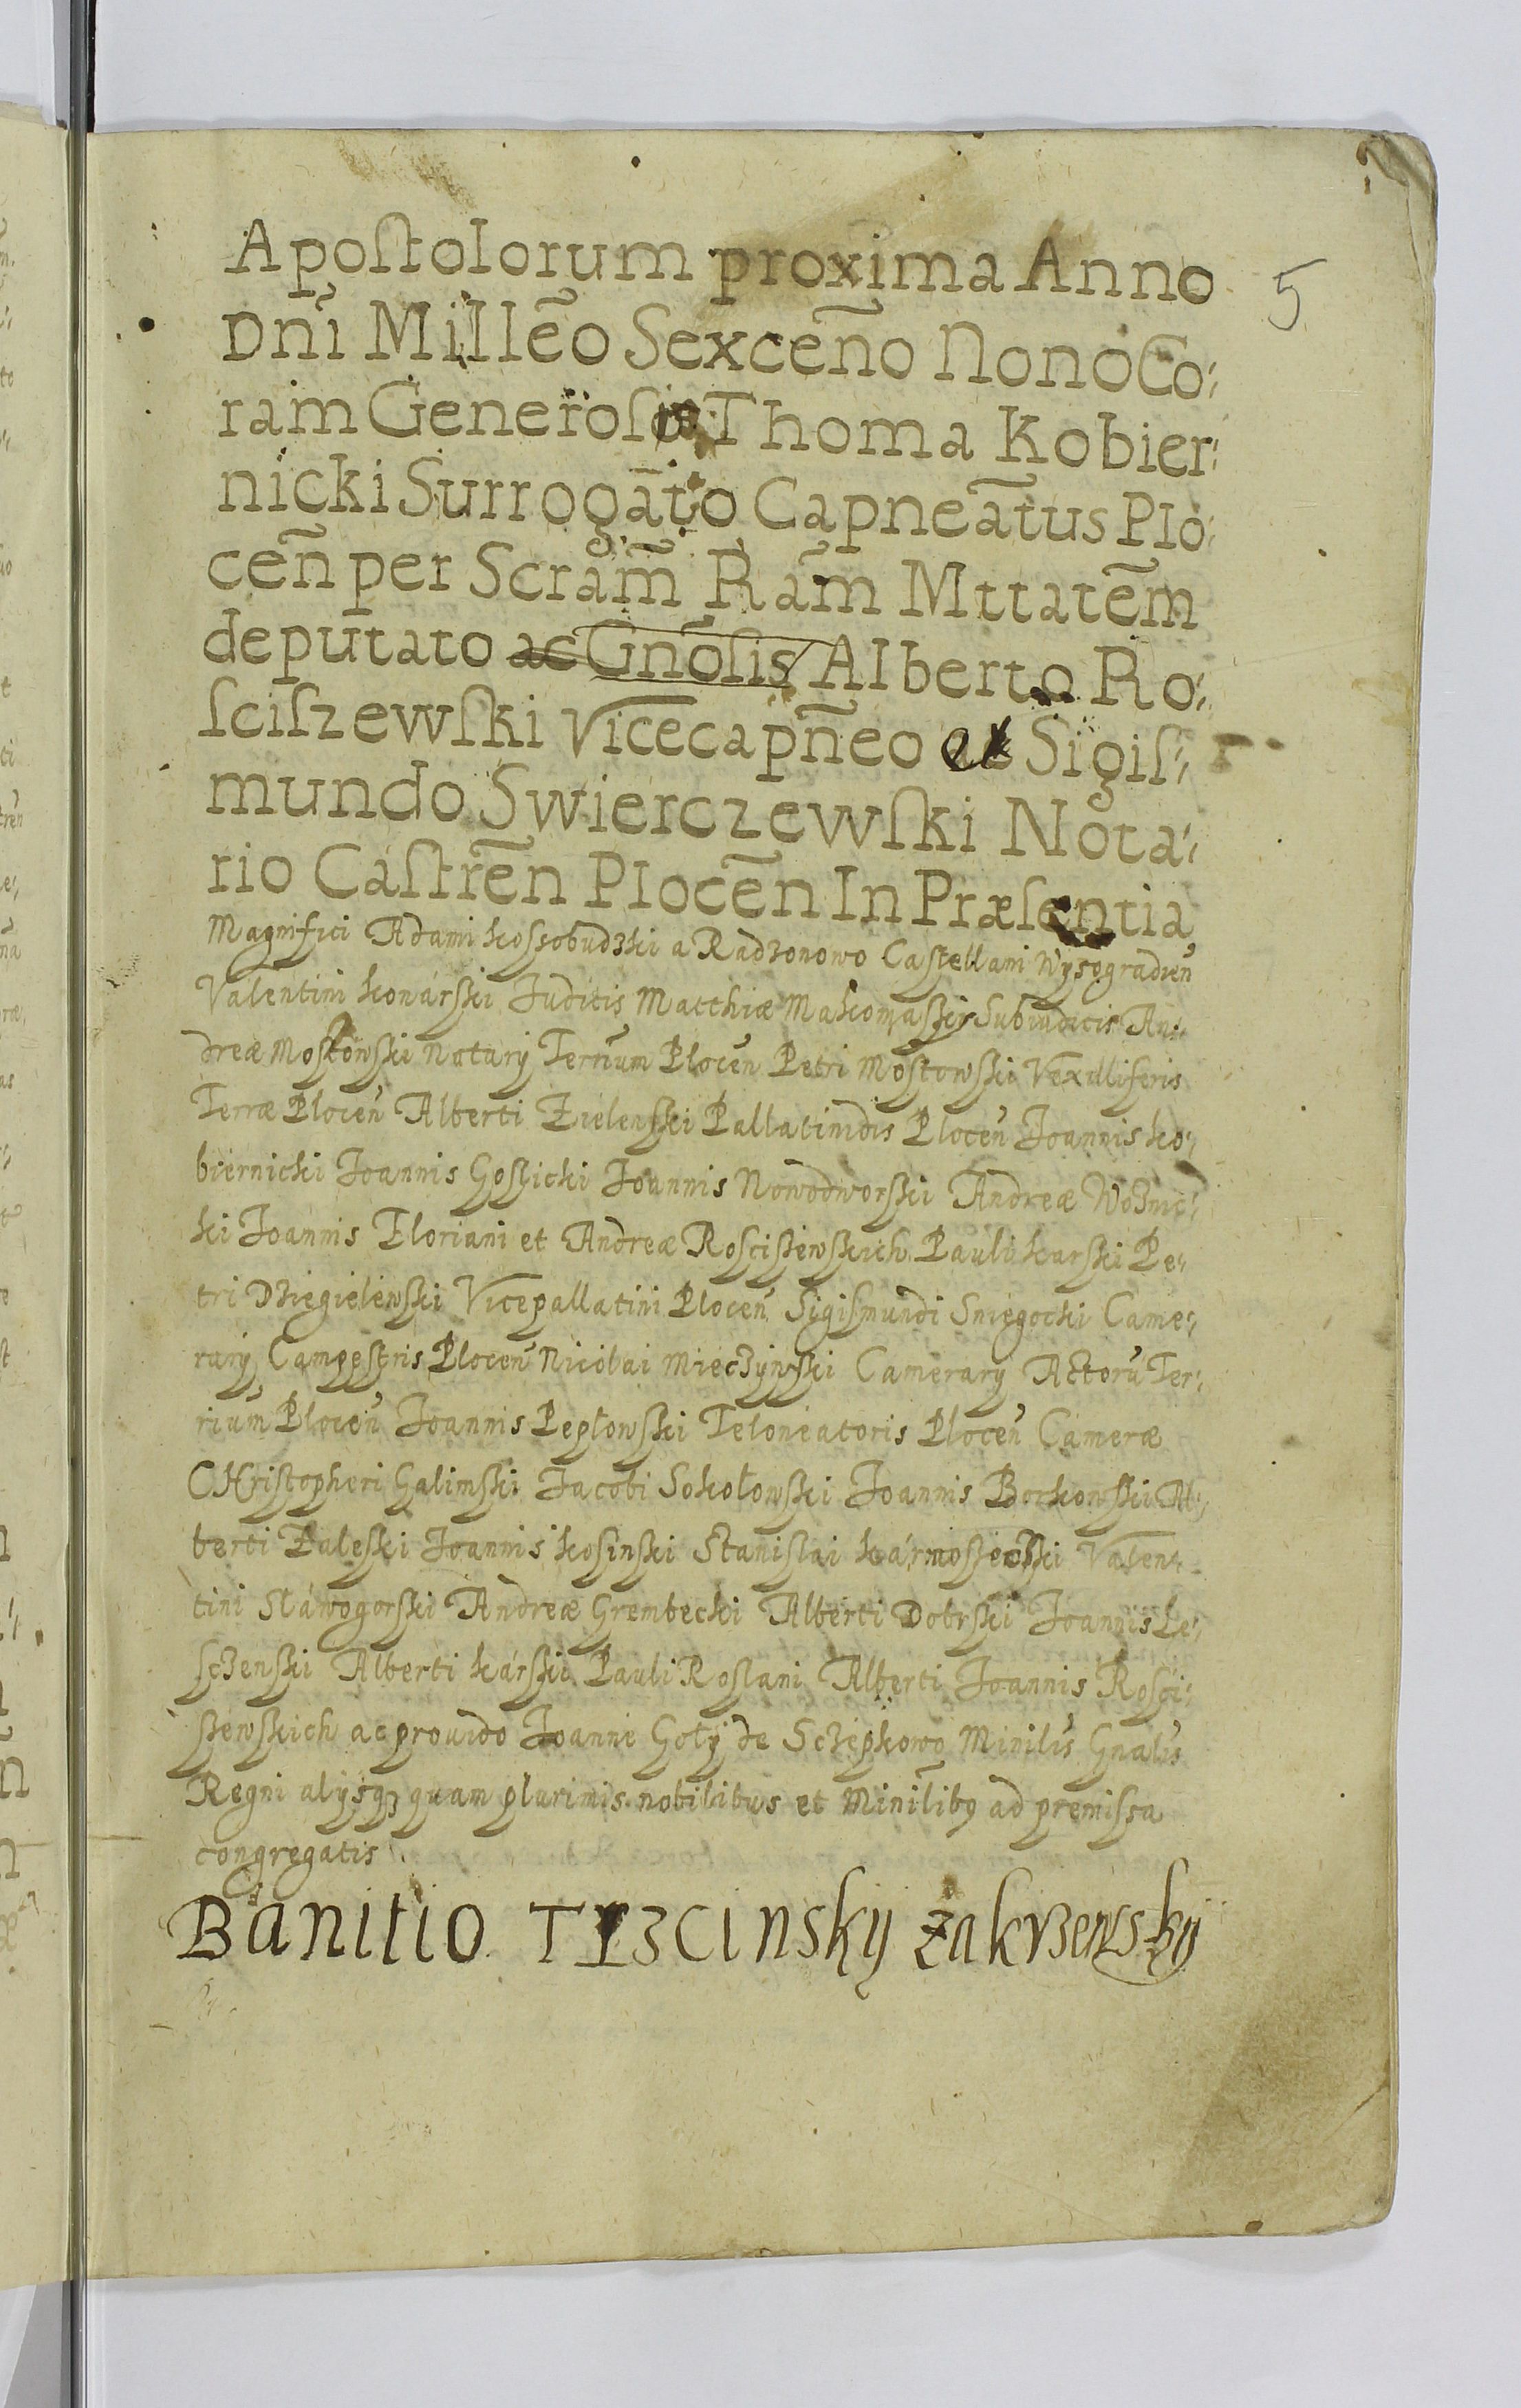 Apostolorum proxima Anno
5
Dnĩ Millẽo Sexceño Nono Co:
ram Generosis Thoma Kobier:
nicki Surrogãto Capneãtus Plo:
ceñ per Scram̃ Rãm Mttatẽm
deputato ac Gnõsis Alberto Ro:
sciszewski Vicecapñeo et Sigis:
mundo Swierczewski Nota:
rio Castrẽn Plocẽn In Præsentia
Magnifici Adami Kossobudzki a Radzonowo Castellani Wysogradien̄
Valentini Konárski Iudicis Matthiæ Makomaski Subiudicis An:
dreæ Mostowski Notarÿ Terrium Plocen̄ Petri Mostowski Vexilliferis
Terræ Plocen̄ Alberti Zielenski Pallatinidis Plocen̄ Joannis Ko:
biernicki Joannis Goszicki Joannis Nowodworski Andreæ Woznic:
ki Joannis Floriani et Andreæ Roscissewskich Pauli Karski Pe:
tri Dziegielewski Vicepallatini Plocen̄ Sigismundi Sniegocki Came:
rarÿ Campestris Plocen̄ Nicolai Mieczÿnski Camerarÿ Actorū Ter:
rium̄ Plocen̄ Joannis Pepłowski Teloneatoris Plocen̄ Cameræ
CHristopheri Galimski Jacobi Sokołowski Joannis Borkowski Al:
berti Zaleski Joannis Kosinski Stanislai Valen:
tini Sławogorski Andreæ Grembecki Alberti Dobrski Joannis Le:
sczenski Alberti Kárski Pauli Roslani Alberti Joannis Rosci:
ssewskich ac prouido Joanne Gołÿ de Sczepkowo Minilis̄ Gnalis̄
Regni alÿsqꝫ quam plurimis nobilibus et Minilibꝰ ad premissa
congregatis
Banitio Trzcinskÿ Zakrzewskÿ